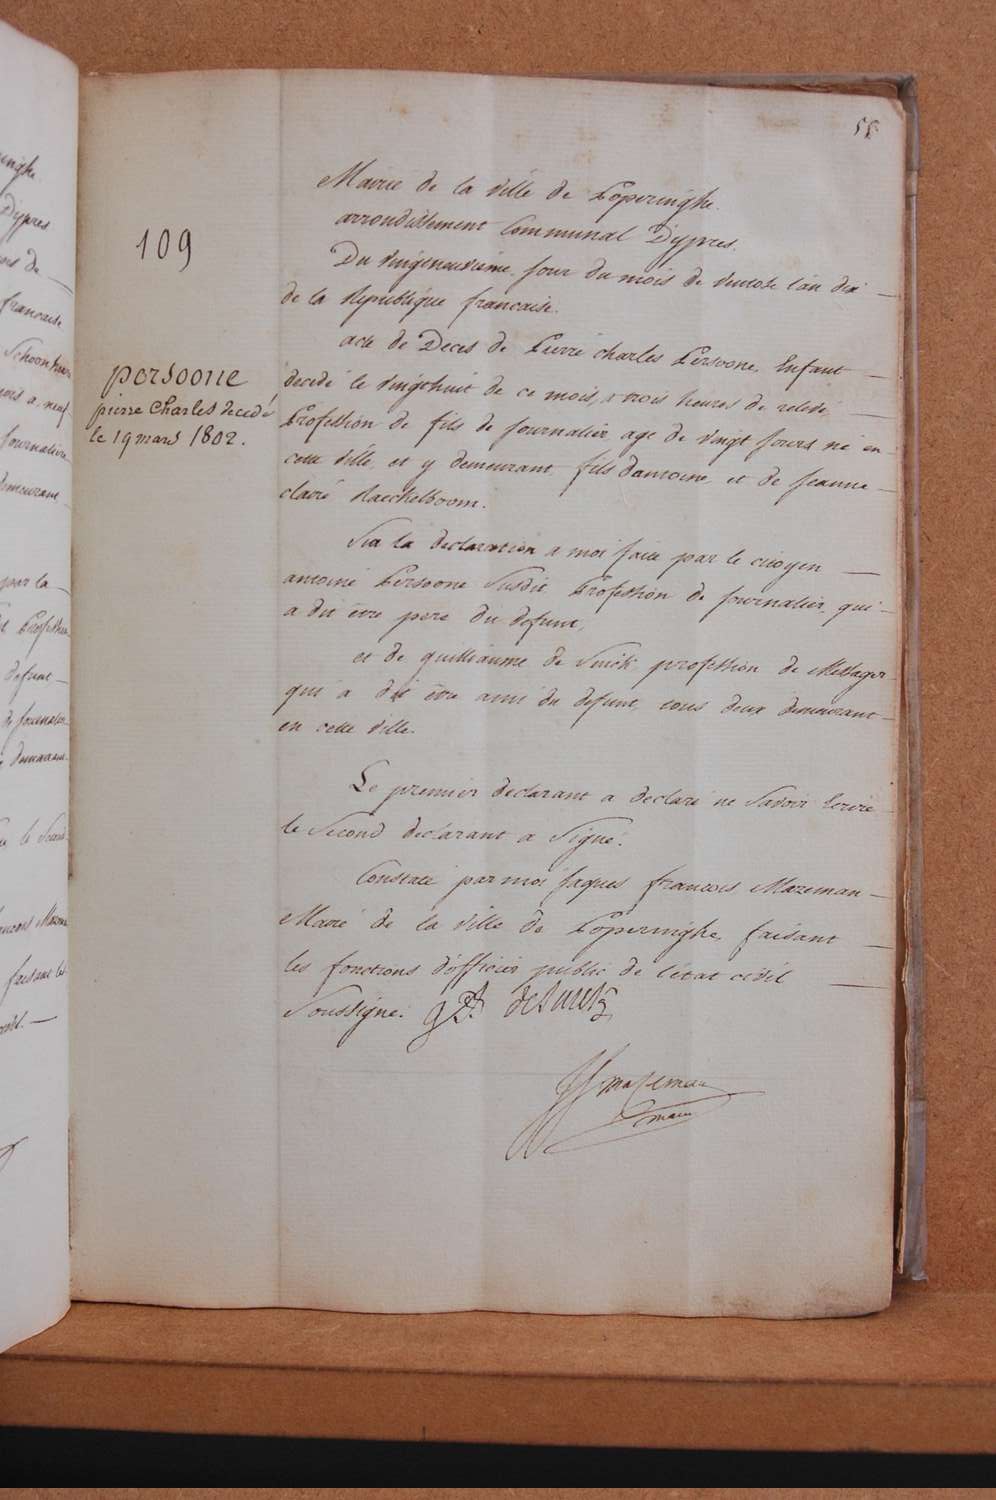 55
Mairie de la ville de Poperinghe.
arrondissement Communal Dypres.
109
Du vingtneuvieme jour du mois de ventose l'an dix —
de la Republique francaise.
acte de Deces de Pierre charles Persoone, Enfant —
persoone
pierre Charles decedé
le 19 mars 1802.
decedé le vingthuit de ce mois, a trois heures de relevé, —
Profession de fils de journalier, agé de vingt jours né en
cette ville, et y demeurant, fils dantoine, et de jeanne —
claire Raeckelboom.
Sur la declaration a moi faite par le citoyen —
antoine Persoone Susdit, Profession de journalier, qui —
a dit être pere du defunt,
et de guilliaume de Smidt, profession de Messager
qui a dit être ami du defunt, tous deux demeurant —
en cette ville.
Le premier declarant a declaré ne Savoir Ecrire
le Second declarant a Signé.
Constaté par moi jaques francois Mazeman —
Maire de la ville de Poperinghe, faisant —
les fonctions d'officier public de l'état civil —
Soussigné.
mazeman
maire